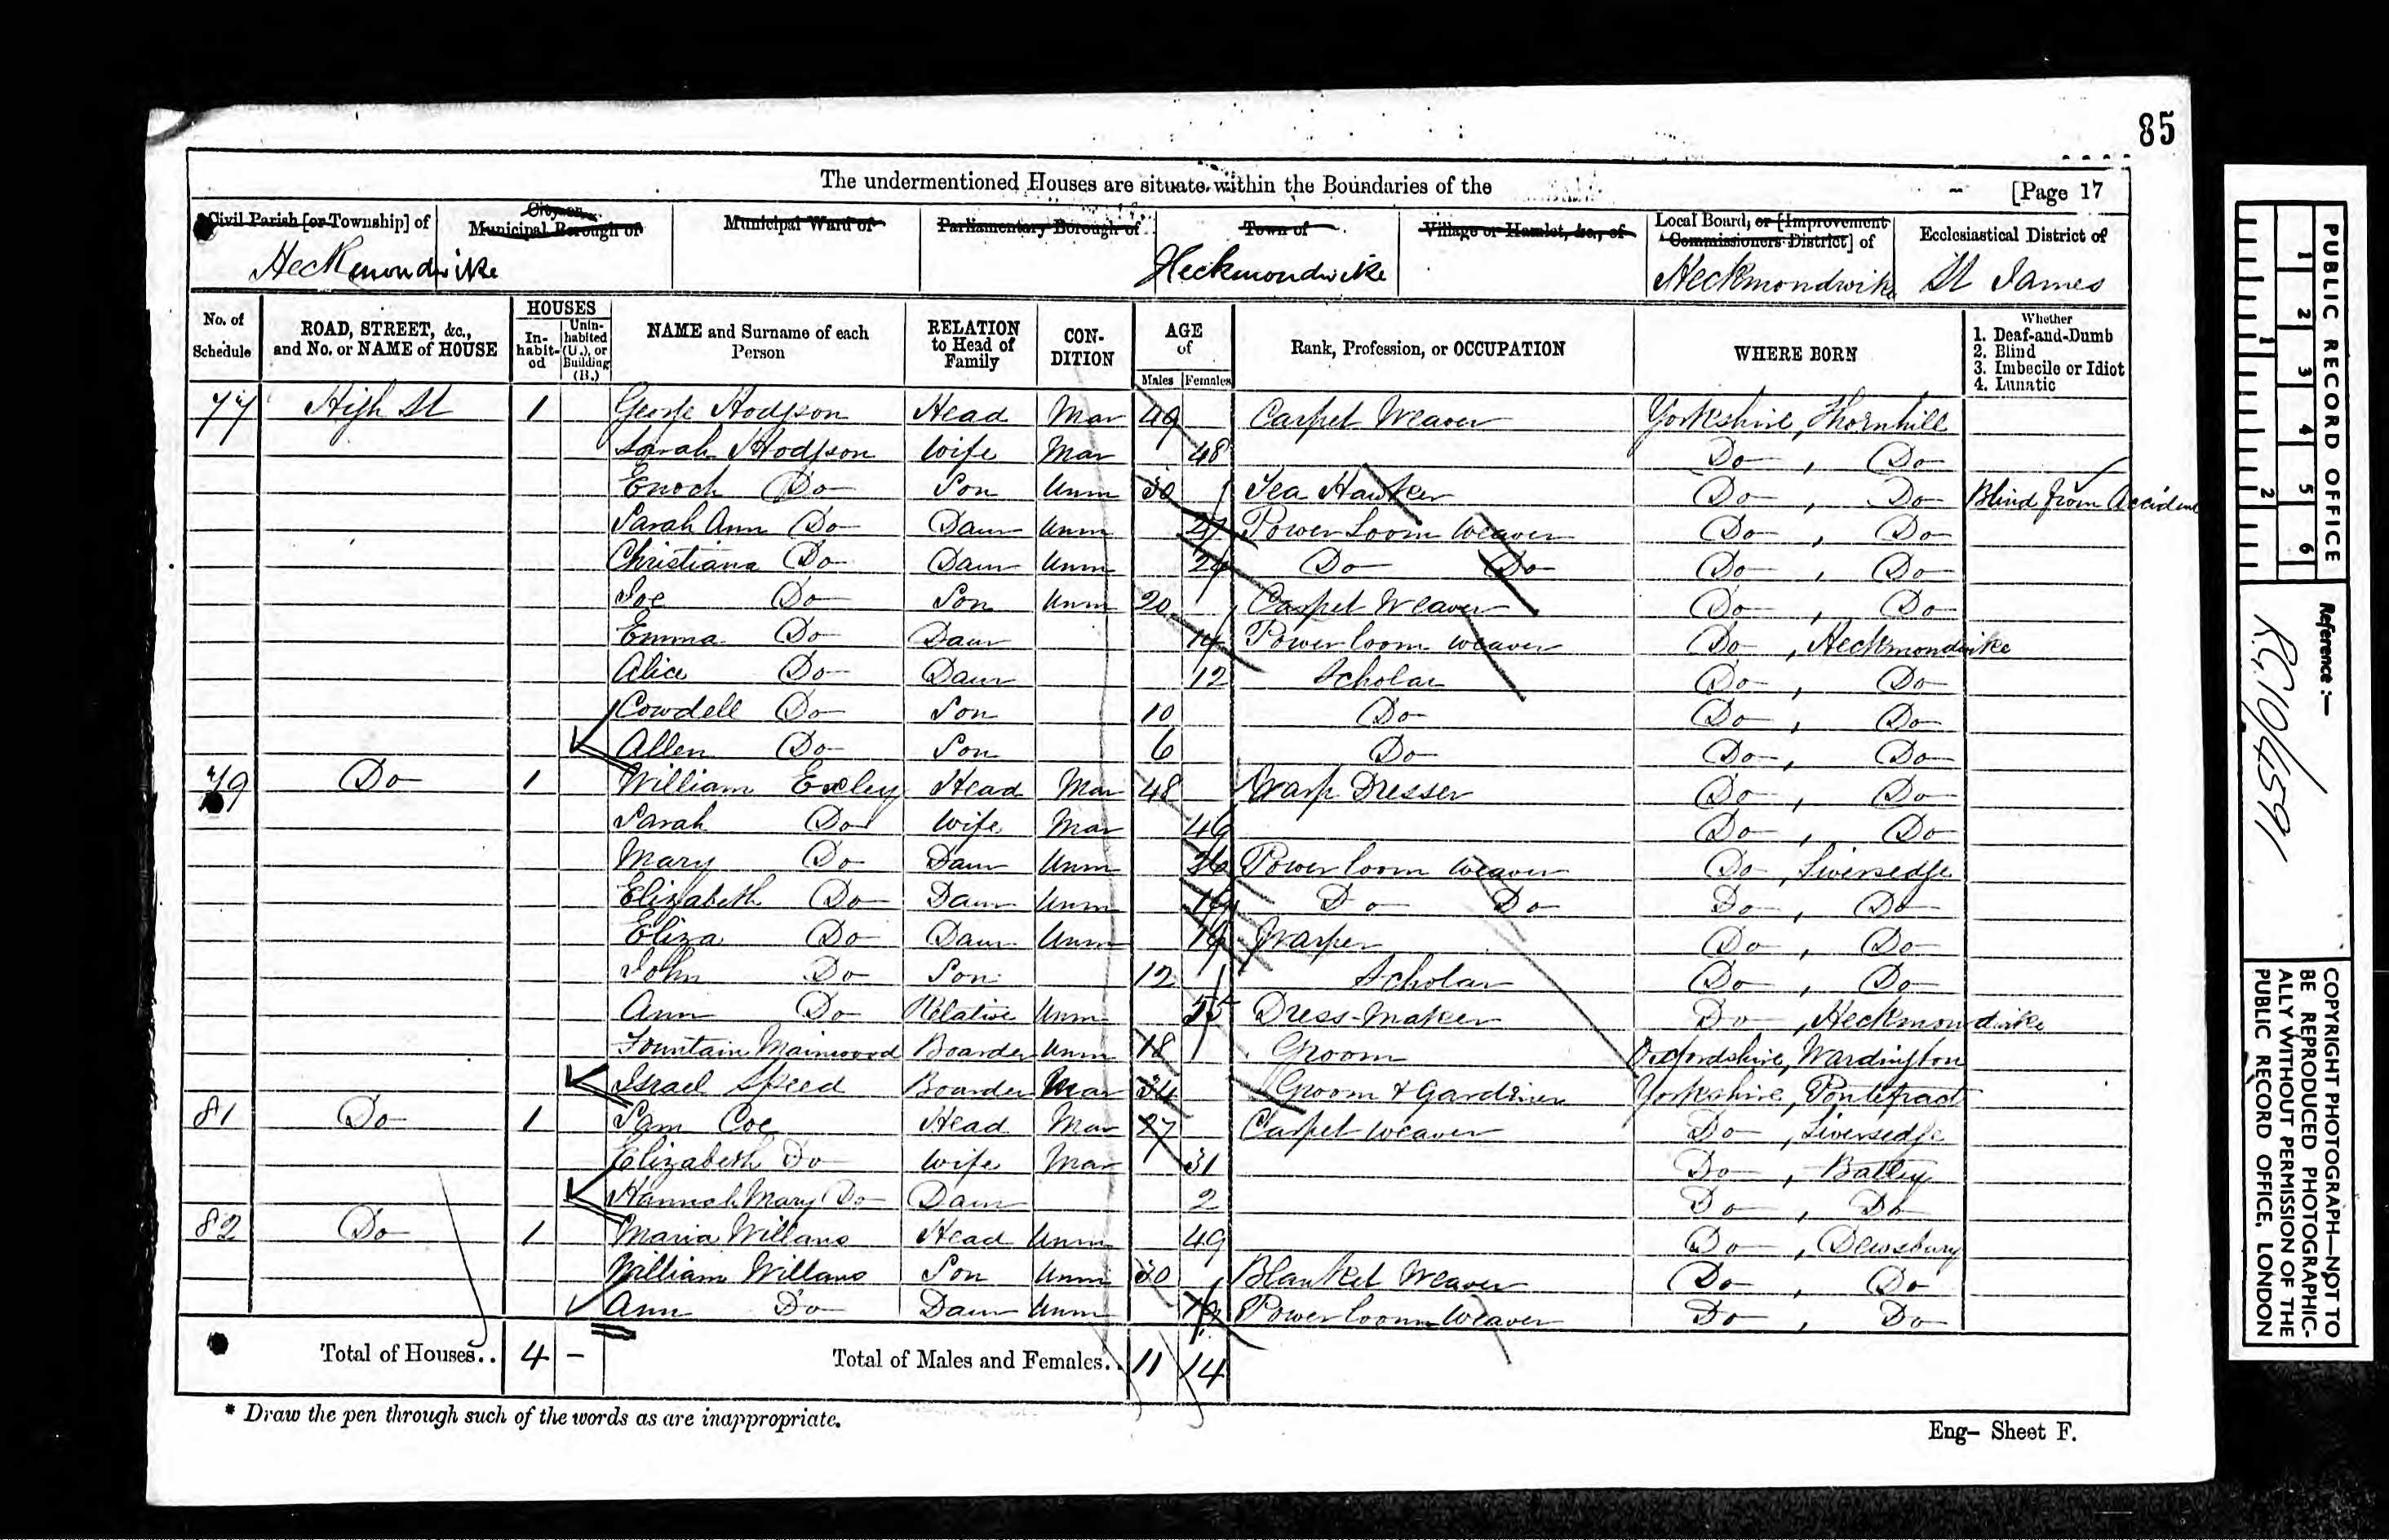 85
The undermentioned Houses are situate within the Boundaries of the [Page 17
Civil Parish [or Township] of
City or Municipal Borough of
Municipal Ward of
Parliamentary Borough of
Town of
Village or Hamlet, &c., of
Local Board, or [Improvement Commissioners District] of
Ecclesiastical District of
Heckmondwike Heckmondwike Heckmondwike St James
No. of Schedule
ROAD, STREET, &c., and No. or NAME of HOUSE
HOUSES
In-habit-ed
Unin-habited (U.), or Building (B.)
NAME and Surname of each Person
RELATION to Head of Family
CON-DITION
AGE of
Males Females
Rank, Profession, or OCCUPATION
WHERE BORN
Whether
1. Deaf-and-Dumb
2. Blind
3. Imbecile or Idiot
4. Lunatic
77 High St 1 George Hodgson Head Mar 49 Carpet Weaver Yorkshire, Thornhill
Sarah Hodgson Wife Mar 48 Do , Do
Enoch Do Son Unm 30 Tea Hawker Do , Do Blind from Accident
Sarah Ann Do Daur Unm Power Loom Weaver Do , Do
Christiana Do Daur Unm Do Do Do , Do
Joe Do Son Unm 20 Carpet Weaver Do , Do
Emma Do Daur 14 Power loom weaver Do , Heckmondwike
Alice Do Daur 12 Scholar Do , Do
Cowdell Do Son 10 Do Do , Do
Allen Do Son 6 Do Do , Do
79 Do 1 William Exley Head Mar 48 Warp Dresser Do , Do
Sarah Do Wife Mar Do , Do
Mary Do Daur Unm 26 Power loom weaver Do , Liversedge
Elizabeth Do Daur Unm Do Do Do , Do
Eliza Do Daur Unm Warper Do , Do
John Do Son 12 Scholar Do , Do
Ann Do Relative Unm Dress-maker Do , Heckmondwike
Fountain Mainwood Boarder Unm 18 Groom Oxfordshire, Wardington
Israel Speed Boarder Mar 34 Groom & Gardiner Yorkshire, Pontefract
81 Do 1 Sam Coe Head Mar 27 Carpet weaver Do , Liversedge
Elizabeth Do Wife Mar 31 Do , Batley
Hannah Mary Do Daur 2 Do , Do
82 Do 1 Maria Willans Head Unm 49 Do , Dewsbury
William Willans Son Unm 30 Blanket Weaver Do , Do
Ann Do Daur Unm 19 Power loom Weaver Do , Do
Total of Houses.. 4 – Total of Males and Females.. 11 14
* Draw the pen through such of the words as are inappropriate.
Eng- Sheet F.
PUBLIC RECORD OFFICE
1 2 3 4 5 6
1 2
Reference :-
R.G. 10/4591
COPYRIGHT PHOTOGRAPH—NOT TO
BE REPRODUCED PHOTOGRAPHIC-
ALLY WITHOUT PERMISSION OF THE
PUBLIC RECORD OFFICE, LONDON